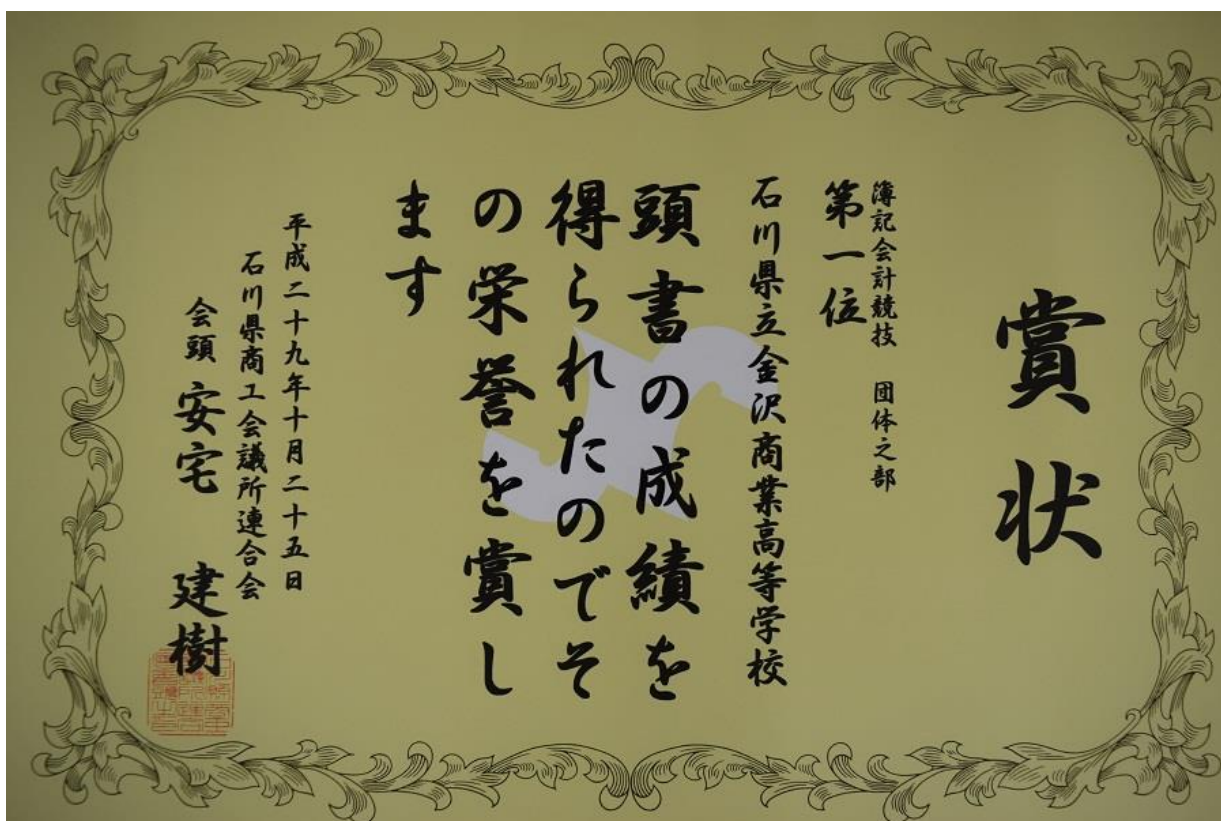 賞状
簿記会計競技 団体之部
第一位
石川県立金沢商業高等学校
頭書の成績を
得られたのでそ
の栄誉を賞し
ます
平成二十九年十月二十五日
石川県商工会議所連合会
会頭 安宅 建樹